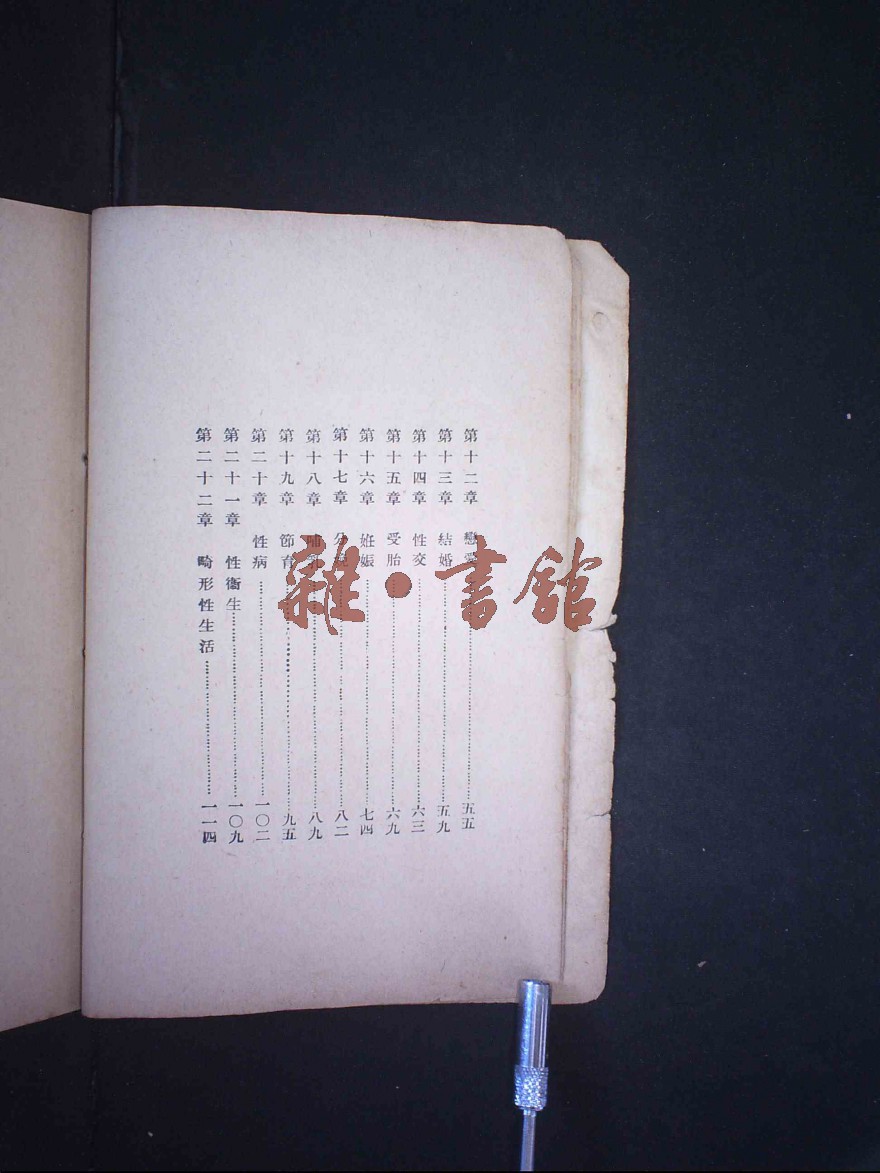 第十二章 戀愛……五五
第十三章 結婚……五九
第十四章 性交……六三
第十五章 受胎……六九
第十六章 妊娠……七四
第十七章 分娩……八二
第十八章 哺乳……八九
第十九章 節育……九五
第二十章 性病……一〇二
第二十一章 性衞生……一〇九
第二十二章 畸形性生活……一一四
雜·書館